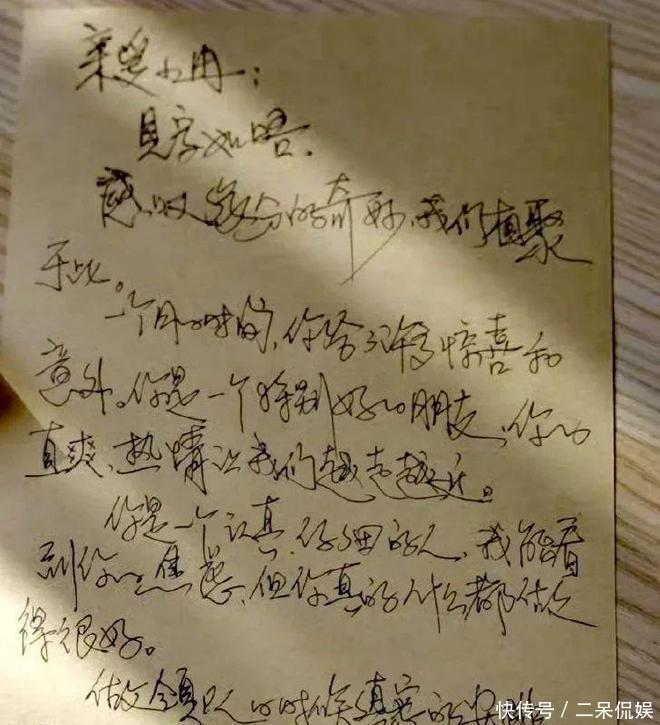 亲爱小冉：
见字如晤.
感叹缘分的奇妙、我们相聚
于此。
一个月时间,你给了许多惊喜和
意外。你是一个特别好的朋友、你的
直爽、热情让我们越走越近。
你是一个认真、仔细的人、我能看
到你的焦虑、但你真的什么都做
得很好。
做领 的时候
快传号／二呆侃娱